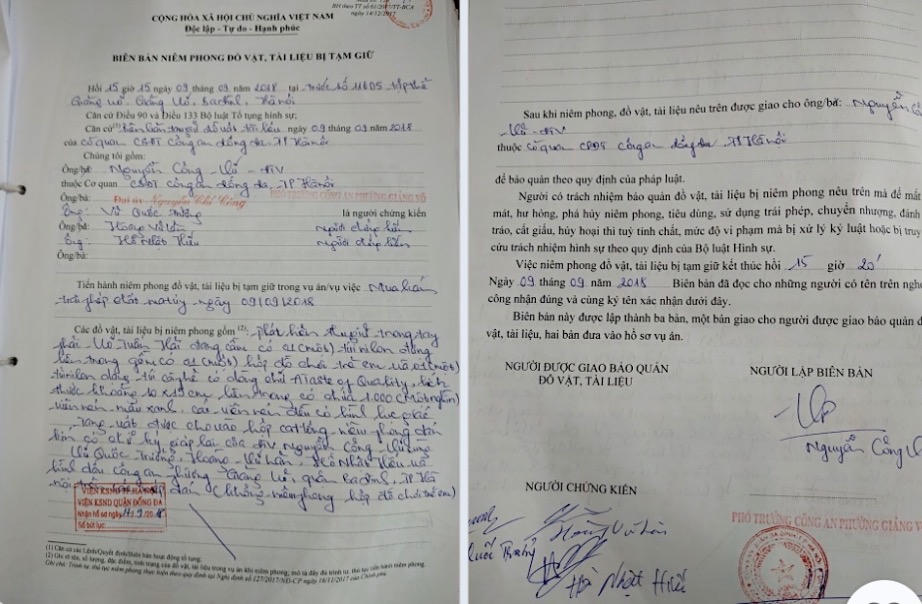 BH theo TT số 61/2017/TT-BCA
ngày 14/12/2017
CỘNG HÒA XÃ HỘI CHỦ NGHĨA VIỆT NAM
Độc lập - Tự do - Hạnh phúc
BIÊN BẢN NIÊM PHONG ĐỒ VẬT, TÀI LIỆU BỊ TẠM GIỮ
Hồi 15 giờ 15 ngày 09 tháng 09 năm 2018 tại trước số 11 tập thể
Giảng Võ, Giảng Võ, Ba Đình, Hà Nội
Căn cứ Điều 90 và Điều 133 Bộ luật Tố tụng hình sự;
Căn cứ (1) Biên bản đồ vật tài liệu ngày 09 tháng 09 năm 2018
của cơ quan CSĐT Công an Đống Đa, TP Hà Nội
Chúng tôi gồm:
Ông/bà: Nguyễn Công - ĐTV
thuộc Cơ quan CSĐT Công an Đống Đa, TP Hà Nội
Ông/bà: Đại úy Nguyễn Chí Công PHÓ TRƯỞNG CÔNG AN PHƯỜNG GIẢNG VÕ
Ông: Vũ Quốc Trưởng là người chứng kiến
Ông/bà: Hoàng Vũ người chứng kiến
Ông: Hồ Nhật Hiếu người chứng kiến
Ông/bà:
Tiến hành niêm phong đồ vật, tài liệu bị tạm giữ trong vụ án/vụ việc Mua bán
trái phép chất ma túy ngày 09/09/2018
Các đồ vật, tài liệu bị niêm phong gồm (2): phát hiện thu giữ trong tay
phải Vũ Tuấn Hải đang cầm có 01 (một) túi nilon đựng
bên trong gồm có 01 (một) hộp đồ chơi trẻ em và 01 (một)
túi nilon dạng túi cà phê có dòng chữ A Taste of Quality, kích
thước khoảng 10 x 15 cm, bên trong có chứa 1.000 (Một nghìn)
viên nén màu xanh, các viên nén đều có hình lục giác
Tang vật được cho vào hộp cattong niêm phong dán
kín có chữ ký giáp lai của ĐTV Nguyễn Công
Vũ Quốc Trưởng, Hoàng Vũ, Hồ Nhật Hiếu và
hình dấu Công an phường Giảng Võ, quận Ba Đình, TP Hà
Nội dán (không niêm phong hộp đồ chơi trẻ em)
VIỆN KSND TP HÀ NỘI
VIỆN KSND QUẬN ĐỐNG ĐA
Nhận hồ sơ ngày 9/2018
Số bút lục
(1) Căn cứ các Lệnh/Quyết định/Biên bản hoạt động tố tụng;
(2) Ghi rõ tên, số lượng, đặc điểm, tình trạng của đồ vật, tài liệu trong vụ án khi niêm phong;
Ghi chú: Trình tự, thủ tục niêm phong thực hiện theo quy định tại Nghị định số 127/2017/NĐ-CP ngày 16/11/2017 của Chính phủ.
Sau khi niêm phong, đồ vật, tài liệu nêu trên được giao cho ông/bà: Nguyễn
- ĐTV
thuộc Cơ quan CSĐT Công an Đống Đa, TP Hà Nội
để bảo quản theo quy định của pháp luật.
Người có trách nhiệm bảo quản đồ vật, tài liệu bị niêm phong nêu trên mà để mất
mát, hư hỏng, phá hủy niêm phong, tiêu dùng, sử dụng trái phép, chuyển nhượng, đánh
tráo, cất giấu, hủy hoại thì tuỳ tính chất, mức độ vi phạm mà bị xử lý kỷ luật hoặc bị truy
cứu trách nhiệm hình sự theo quy định của Bộ luật Hình sự.
Việc niêm phong đồ vật, tài liệu bị tạm giữ kết thúc hồi 15 giờ 20'
Ngày 09 tháng 09 năm 2018 Biên bản đã đọc cho những người có tên trên nghe
công nhận đúng và cùng ký tên xác nhận dưới đây.
Biên bản này được lập thành ba bản, một bản giao cho người được giao bảo quản đ
vật, tài liệu, hai bản đưa vào hồ sơ vụ án.
NGƯỜI ĐƯỢC GIAO BẢO QUẢN
ĐỒ VẬT, TÀI LIỆU
NGƯỜI LẬP BIÊN BẢN
Nguyễn Công
NGƯỜI CHỨNG KIẾN
PHÓ TRƯỞNG CÔNG AN PHƯỜNG GIẢNG V
Hồ Nhật Hiếu